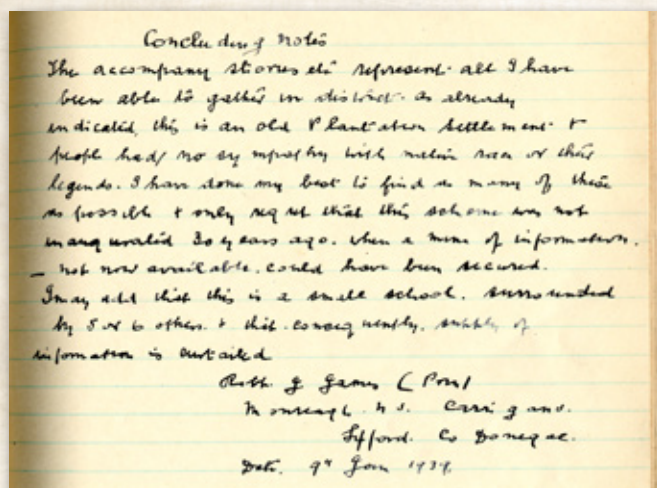 Concluding Notes
The accompany stories etc represent all I have
been able to gather in district. As already
indicated, this is an old Plantation Settlement &
people had no sympathy with native race or their
legends. I have done my best to find as many of these
as possible & only regret that this scheme was not
inaugurated 30 years ago. when a mine of information.
– not now available. could have been secured.
I may add that this is a small school. surrounded
by 5 or 6 others. & that consequently. supply of
information is curtailed
Robt. G
Monreagh. N.S. Carrigans.
Lifford. Co Donegal.
Date. 9th Jan 1939.